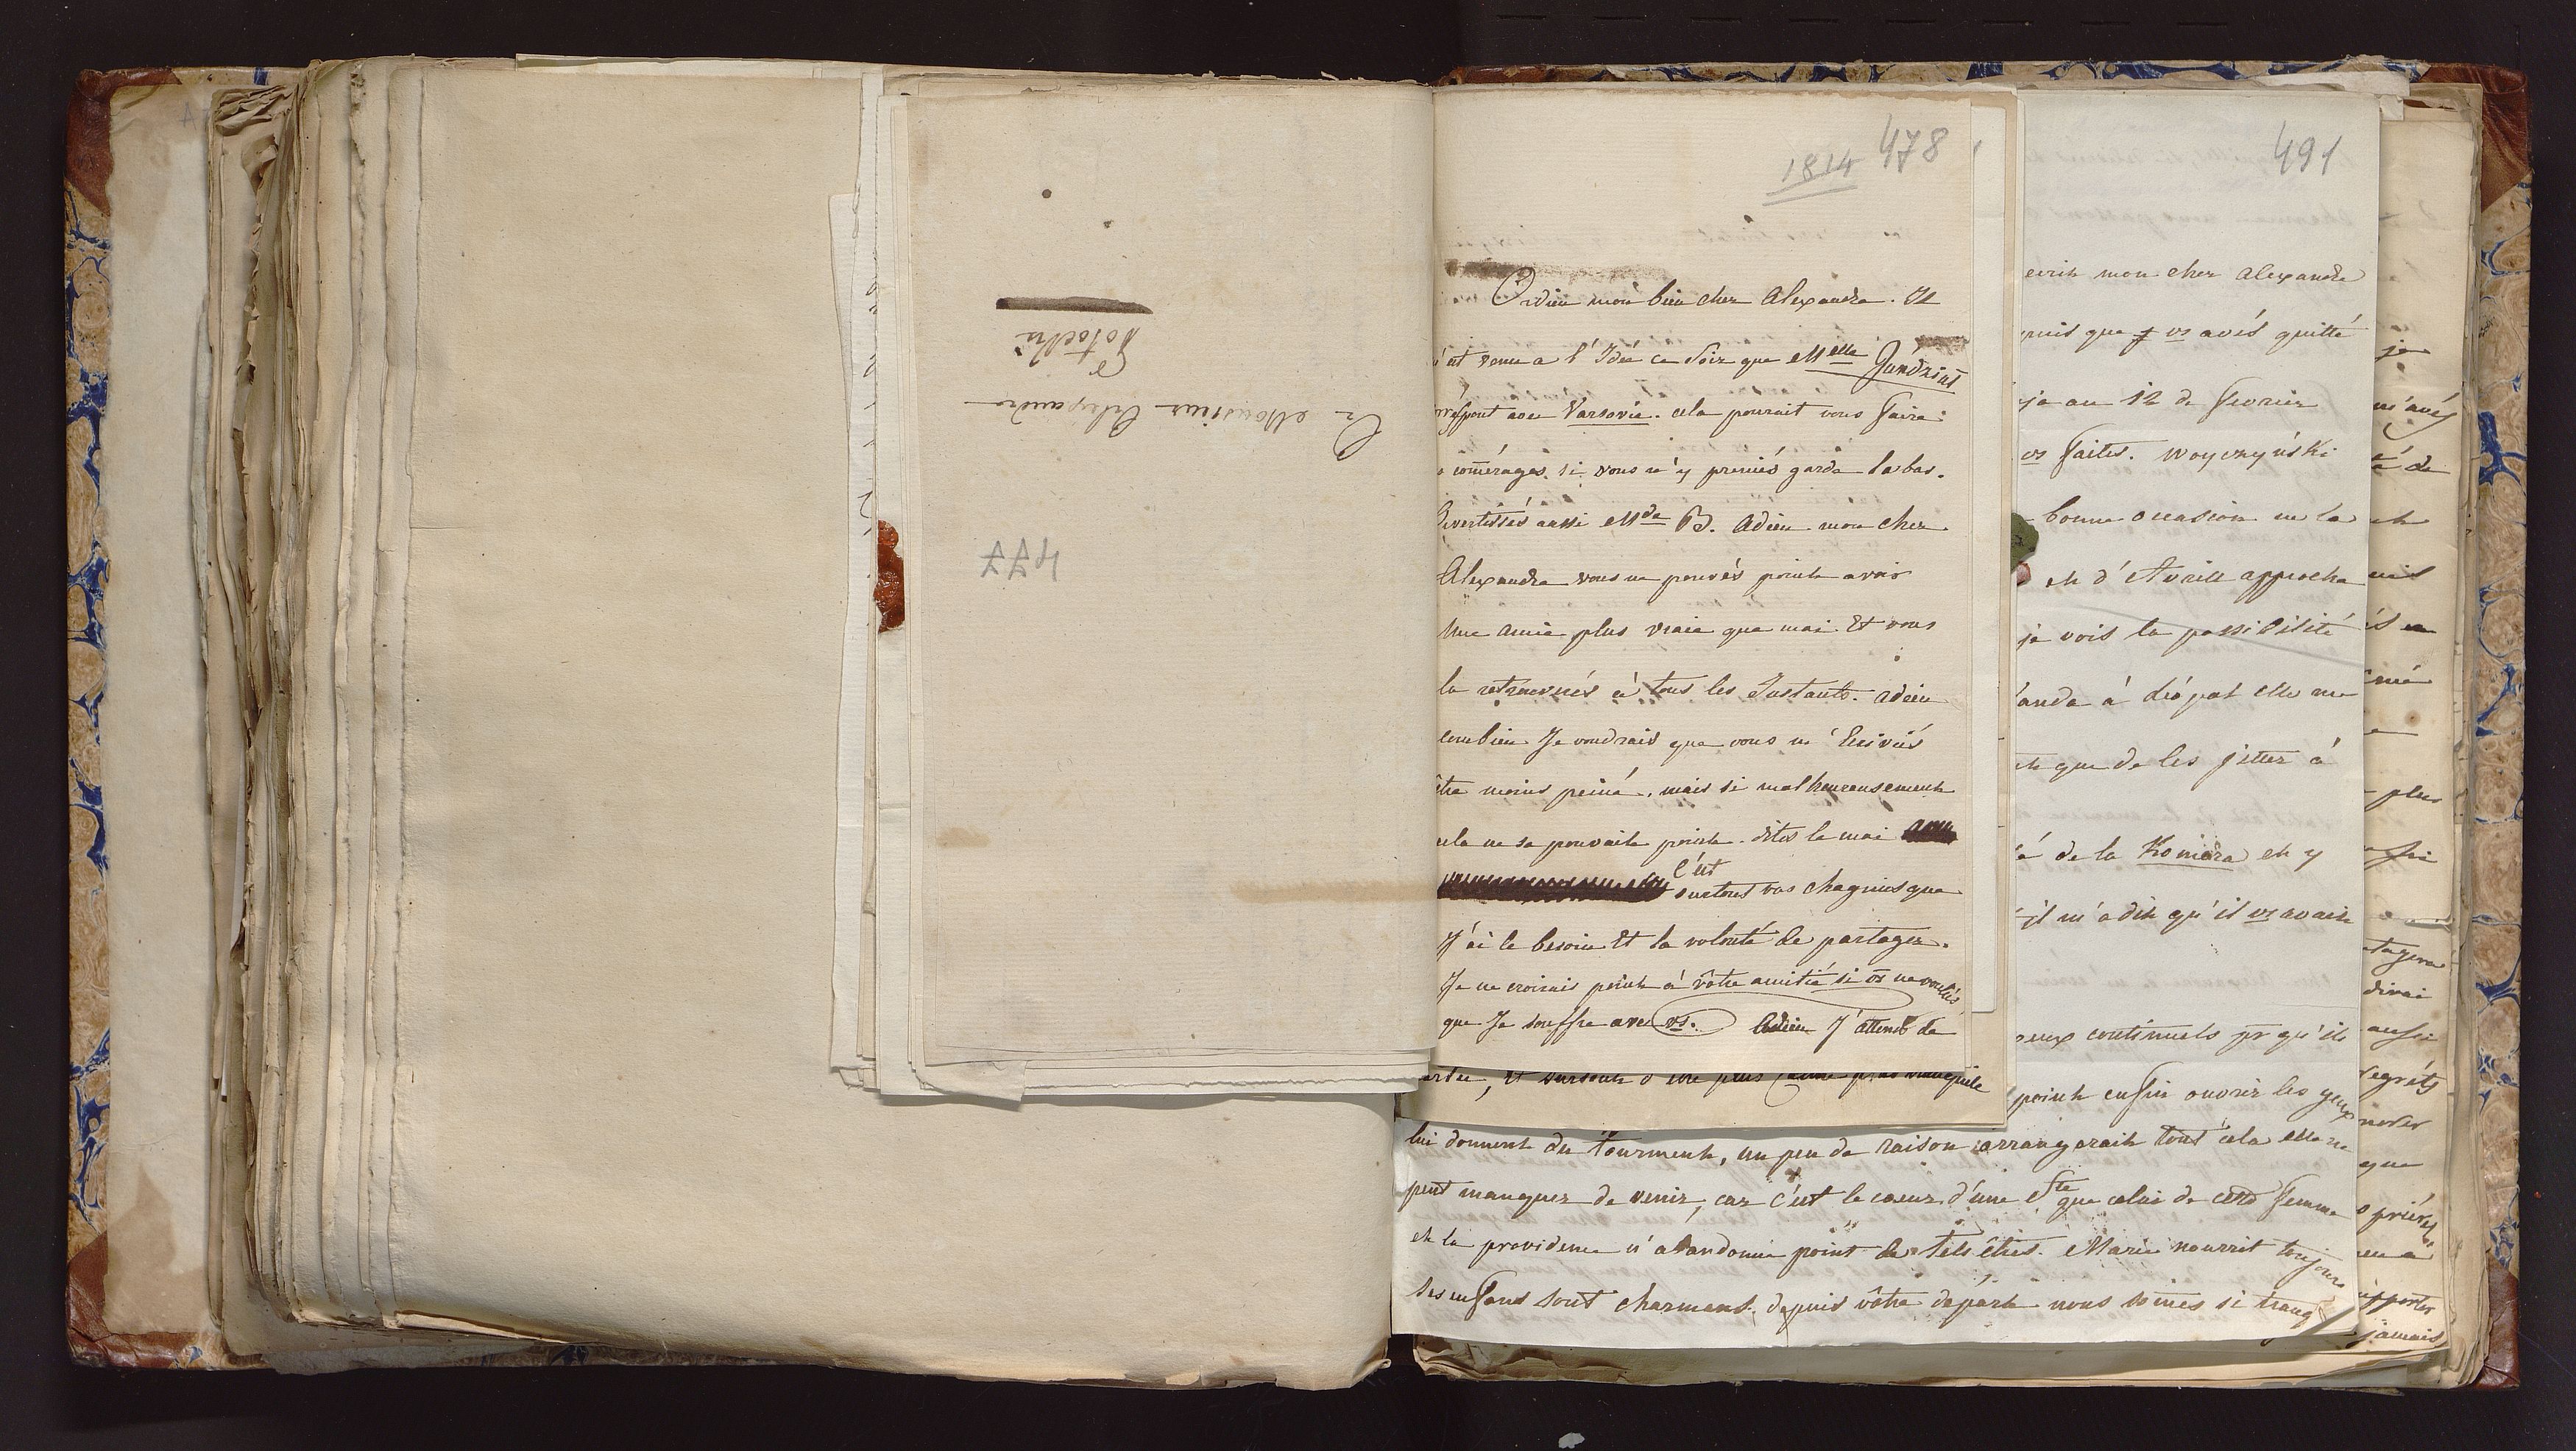 A Monsieur Alexandre
Potocki
477
1814 478
Adieu mon bien cher Alexandre. Il
est venu a l'Idée ce Soir que Melle Gundriat
avec Varsovie. cela pourait vous faire
comérages. si vous n'y preniés garde la bas.
Avertissés aussi Mde B. Adieu mon cher
Alexandre vous ne pouvés point avoir
Une amie plus vraie que moi Et vous
la retrouverés à tous les Instants. adieu
combien Je voudrais que vous m'Ecriviés
être moins peiné, mais si malheureusement
cela ne se pouvait point. dites le moi
c'est
surtout vos chagrins que
J'ai le besoin Et la volonté de partager.
Je ne croirais point à vôtre amitié si vs ne vouliés
que Je souffre avec vs. Adieu J'attends de
Et surtout d'être plus calme plus tranquile
491
ecrit mon cher Alexandre
puis que vs avés quitté
ja au 12 de fevrier
vs faites. Woyczyński
bonne occasion ne la
et d'Avrill approche
je vois la possibilité
anda à Léopol elle me
que de les jetter à
é de la Komora et y
il m'a dit qu'il vs avait
eux continuels pr qu'ils
point enfin ouvrir les yeux
lui donnent du tourment, un peu de raison arrangerait tout cela elle ne
peut manquer de venir, car c'est le coeur d'une Ste que celui de cette femme
et la providence n'abandonne point de tels êtres. Marie nourrit toujours
ses enfans sont charmans, depuis vôtre départ nous somes si tranq
je
m'avés
é de
plus
tagera
dirai
aussi
regréts
que
prières
apporter
jamais